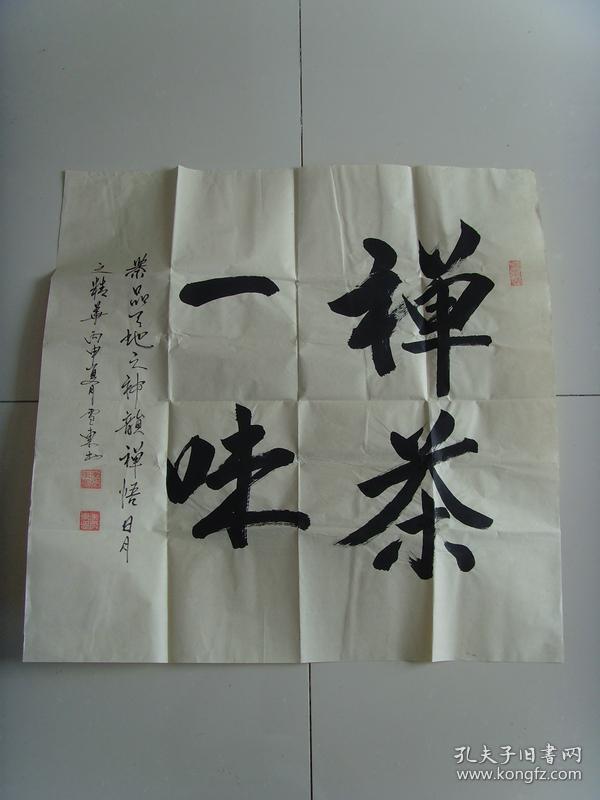 禅茶
一味
品天地之神韻禅悟日月
之精華丙申夏月
孔夫子旧书网
www.kongfz.com